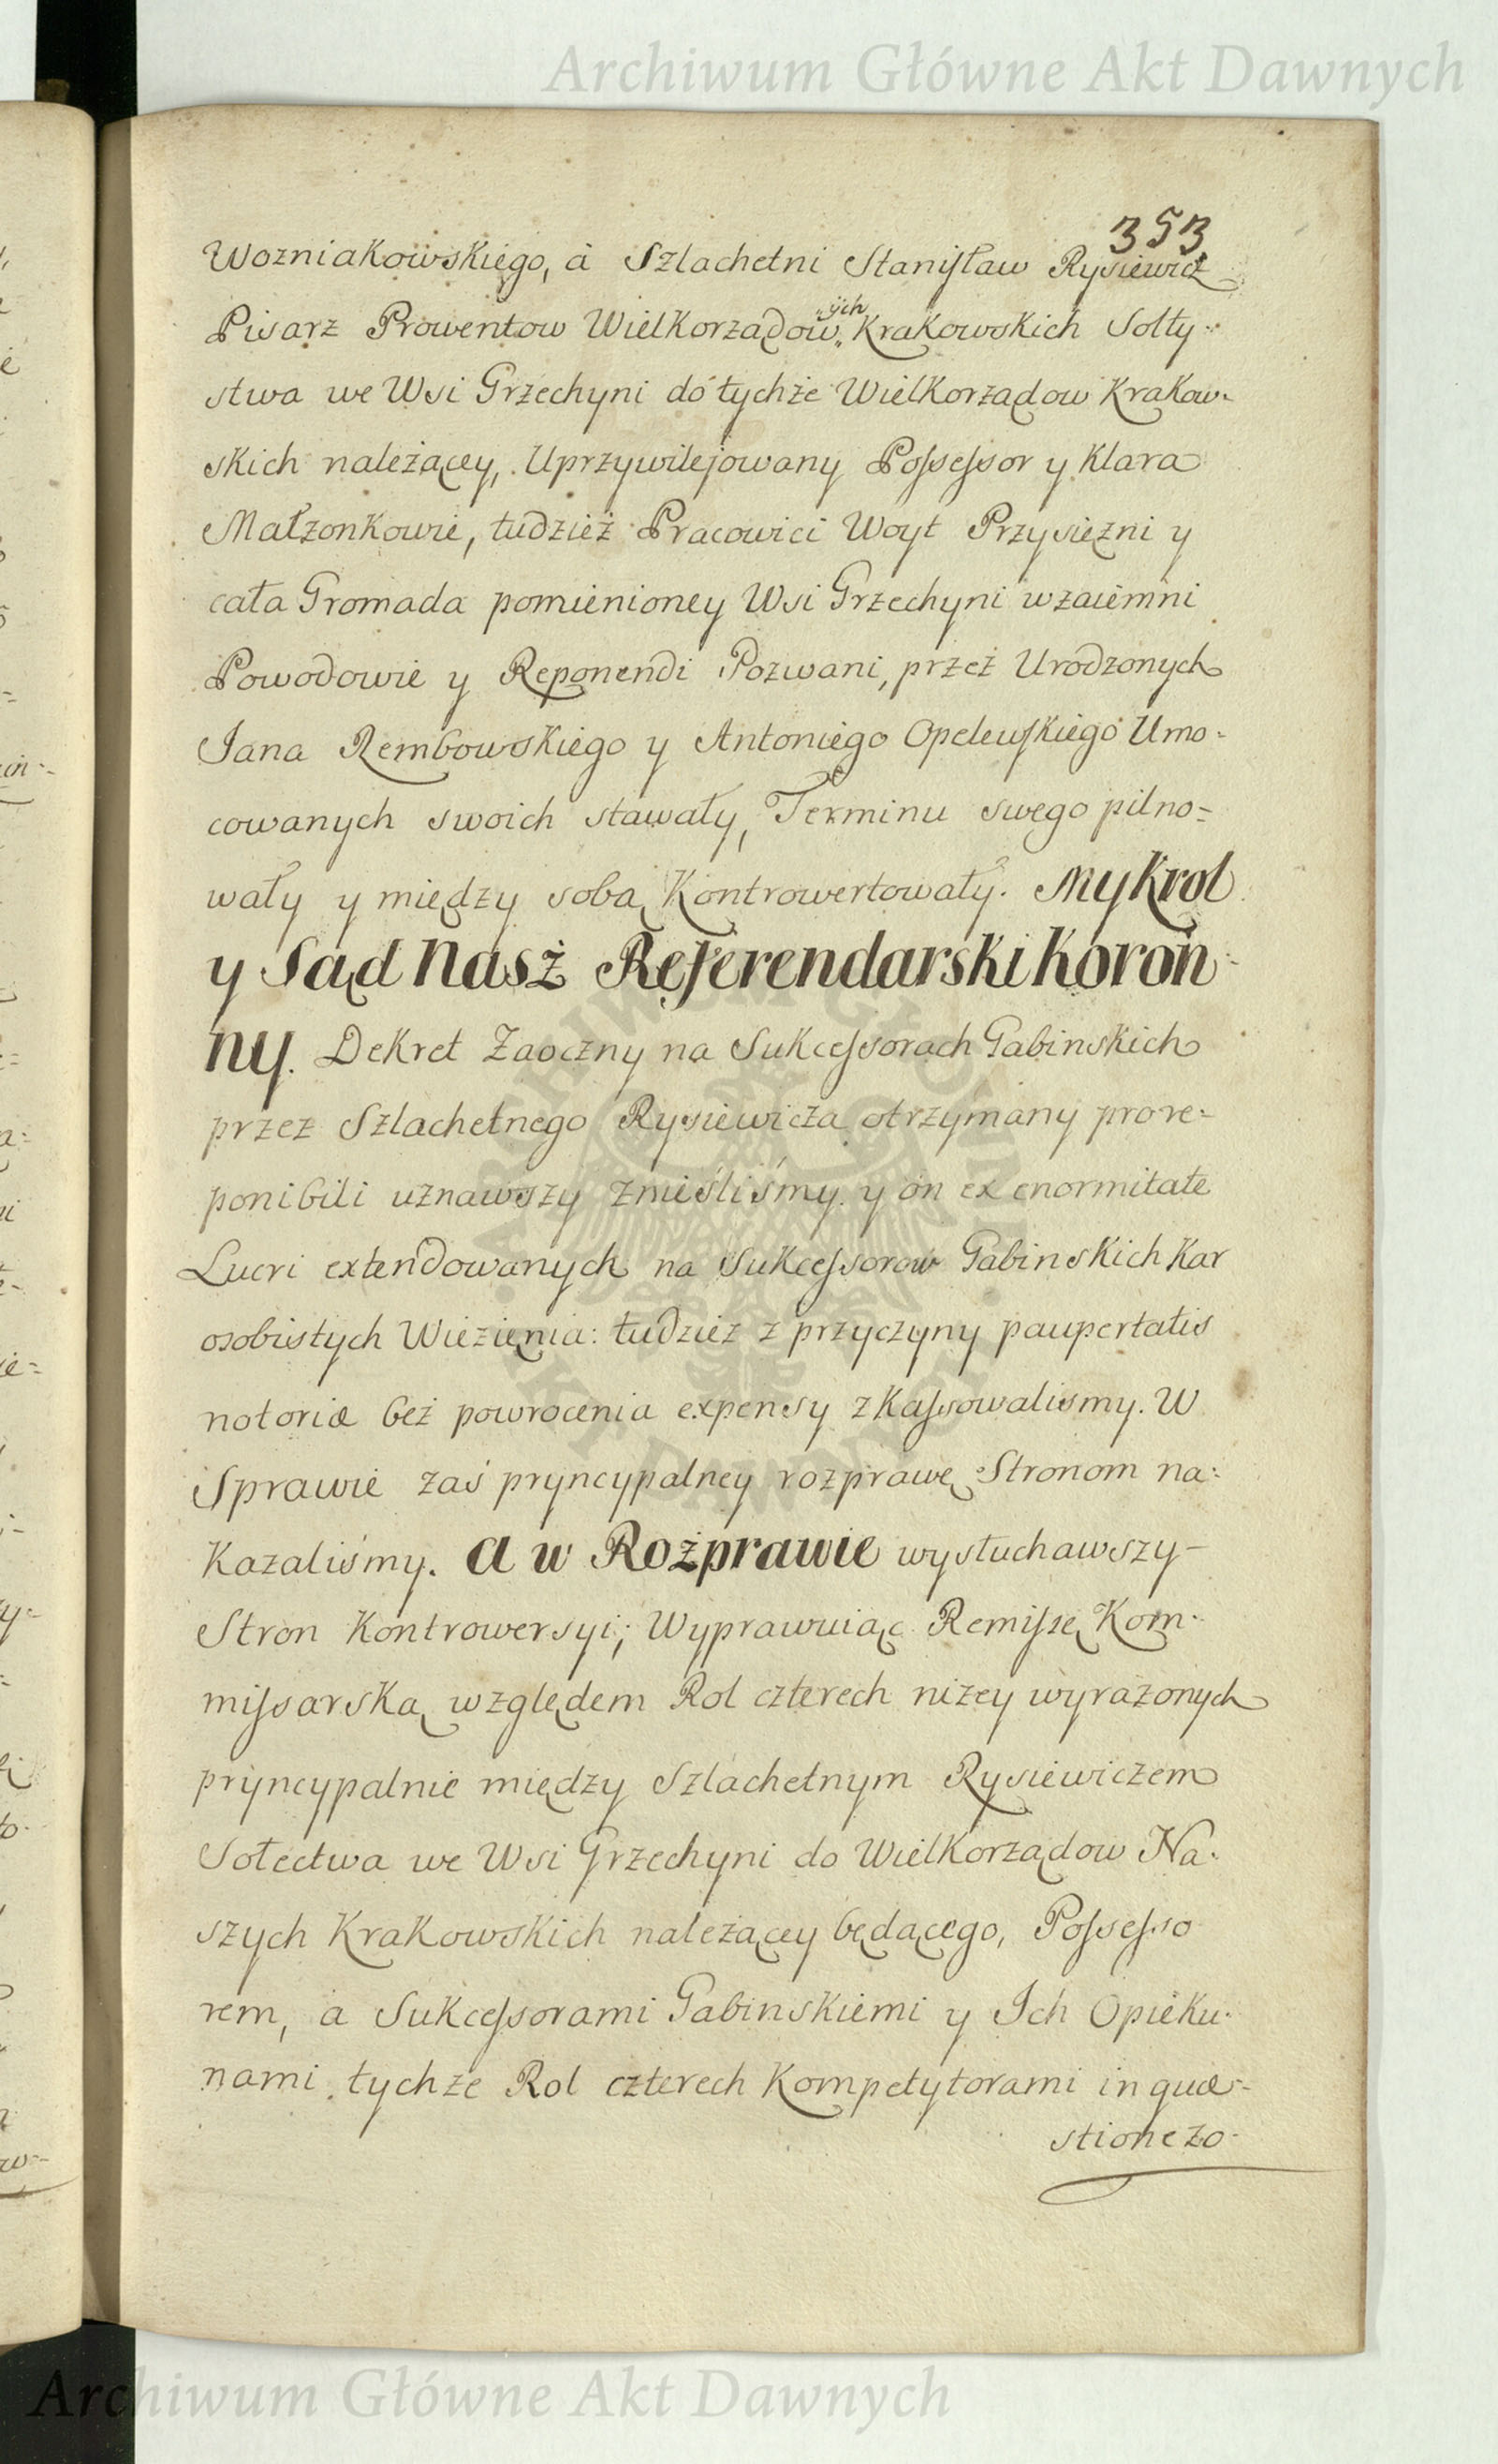 Archiwum Główne Akt Dawnych
353
Wozniakowskiego, à Szlachetni Stanisław Rysiewicz
Pisarz Prowentow Wielkorządow ych Krakowskich Sołty-
stwa we Wsi Grzechyni do tychże Wielkorządow Krakow-
skich należącey, Uprzywilejowany Possessor y Klara
Małzonkowie, tudzież Pracowici Woyt Przysiężni y
cała Gromada pomienioney Wsi Grzechyni wzaiemni
Powodowie y Reponendi Pozwani, przez Urodzonych
Jana Rembowskiego y Antoniego Opelewskiego Umo-
cowanych swoich stawały, Terminu swego pilno=
wały y między sobą Kontrowertowały. My Krol
y Sąd Nasz Referendarski Koron-
ny. Dekret Zaoczny na Sukcessorach Gabinskich
przez Szlachetnego Rysiewicza otrzymany prore-
ponibili uznawszy znieśliśmy y on ex enormitate
Lucri extendowanych na Sukcessorow Gabinskich Kar
osobistych Więzięnia: tudzież z przyczyny paupertatis
notoriæ bez powrocenia expensy zKassowalismy. W
Sprawie zaś pryncypalney rozprawę Stronom na-
Kazaliśmy. A w Rozprawie wysłuchawszy-
Stron Kontrowersyi; Wyprawuiąc Remissę Kom-
missarską względem Rol czterech niżey wyrażonych
pryncypalnie między Szlachetnym Rysiewiczem
Sołectwa we Wsi Grzechyni do Wielkorządow Na-
szych Krakowskich należącey będącego, Possesso
rem, a Sukcessorami Gabinskiemi y Ich Opieku-
nami tychże Rol czterech Kompetytorami in quæ-
stione zo-
Archiwum Główne Akt Dawnych